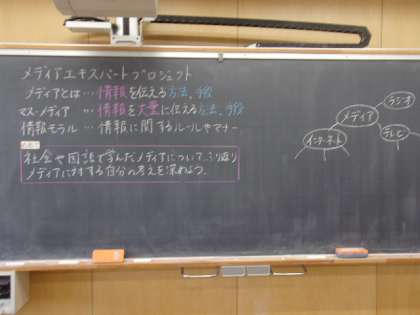 メディアエキスパートプロジェクト
メディアとは…情報を伝える方法、手段
マス・メディア …情報を大量に伝える方法、手段
情報モラル …情報に関するルールやマナー
めあて
社会や国語で学んだメディアについてふり返り
メディアに対する自分の考えを深めよう。
ラジオ
メディア
テレビ
インターネット